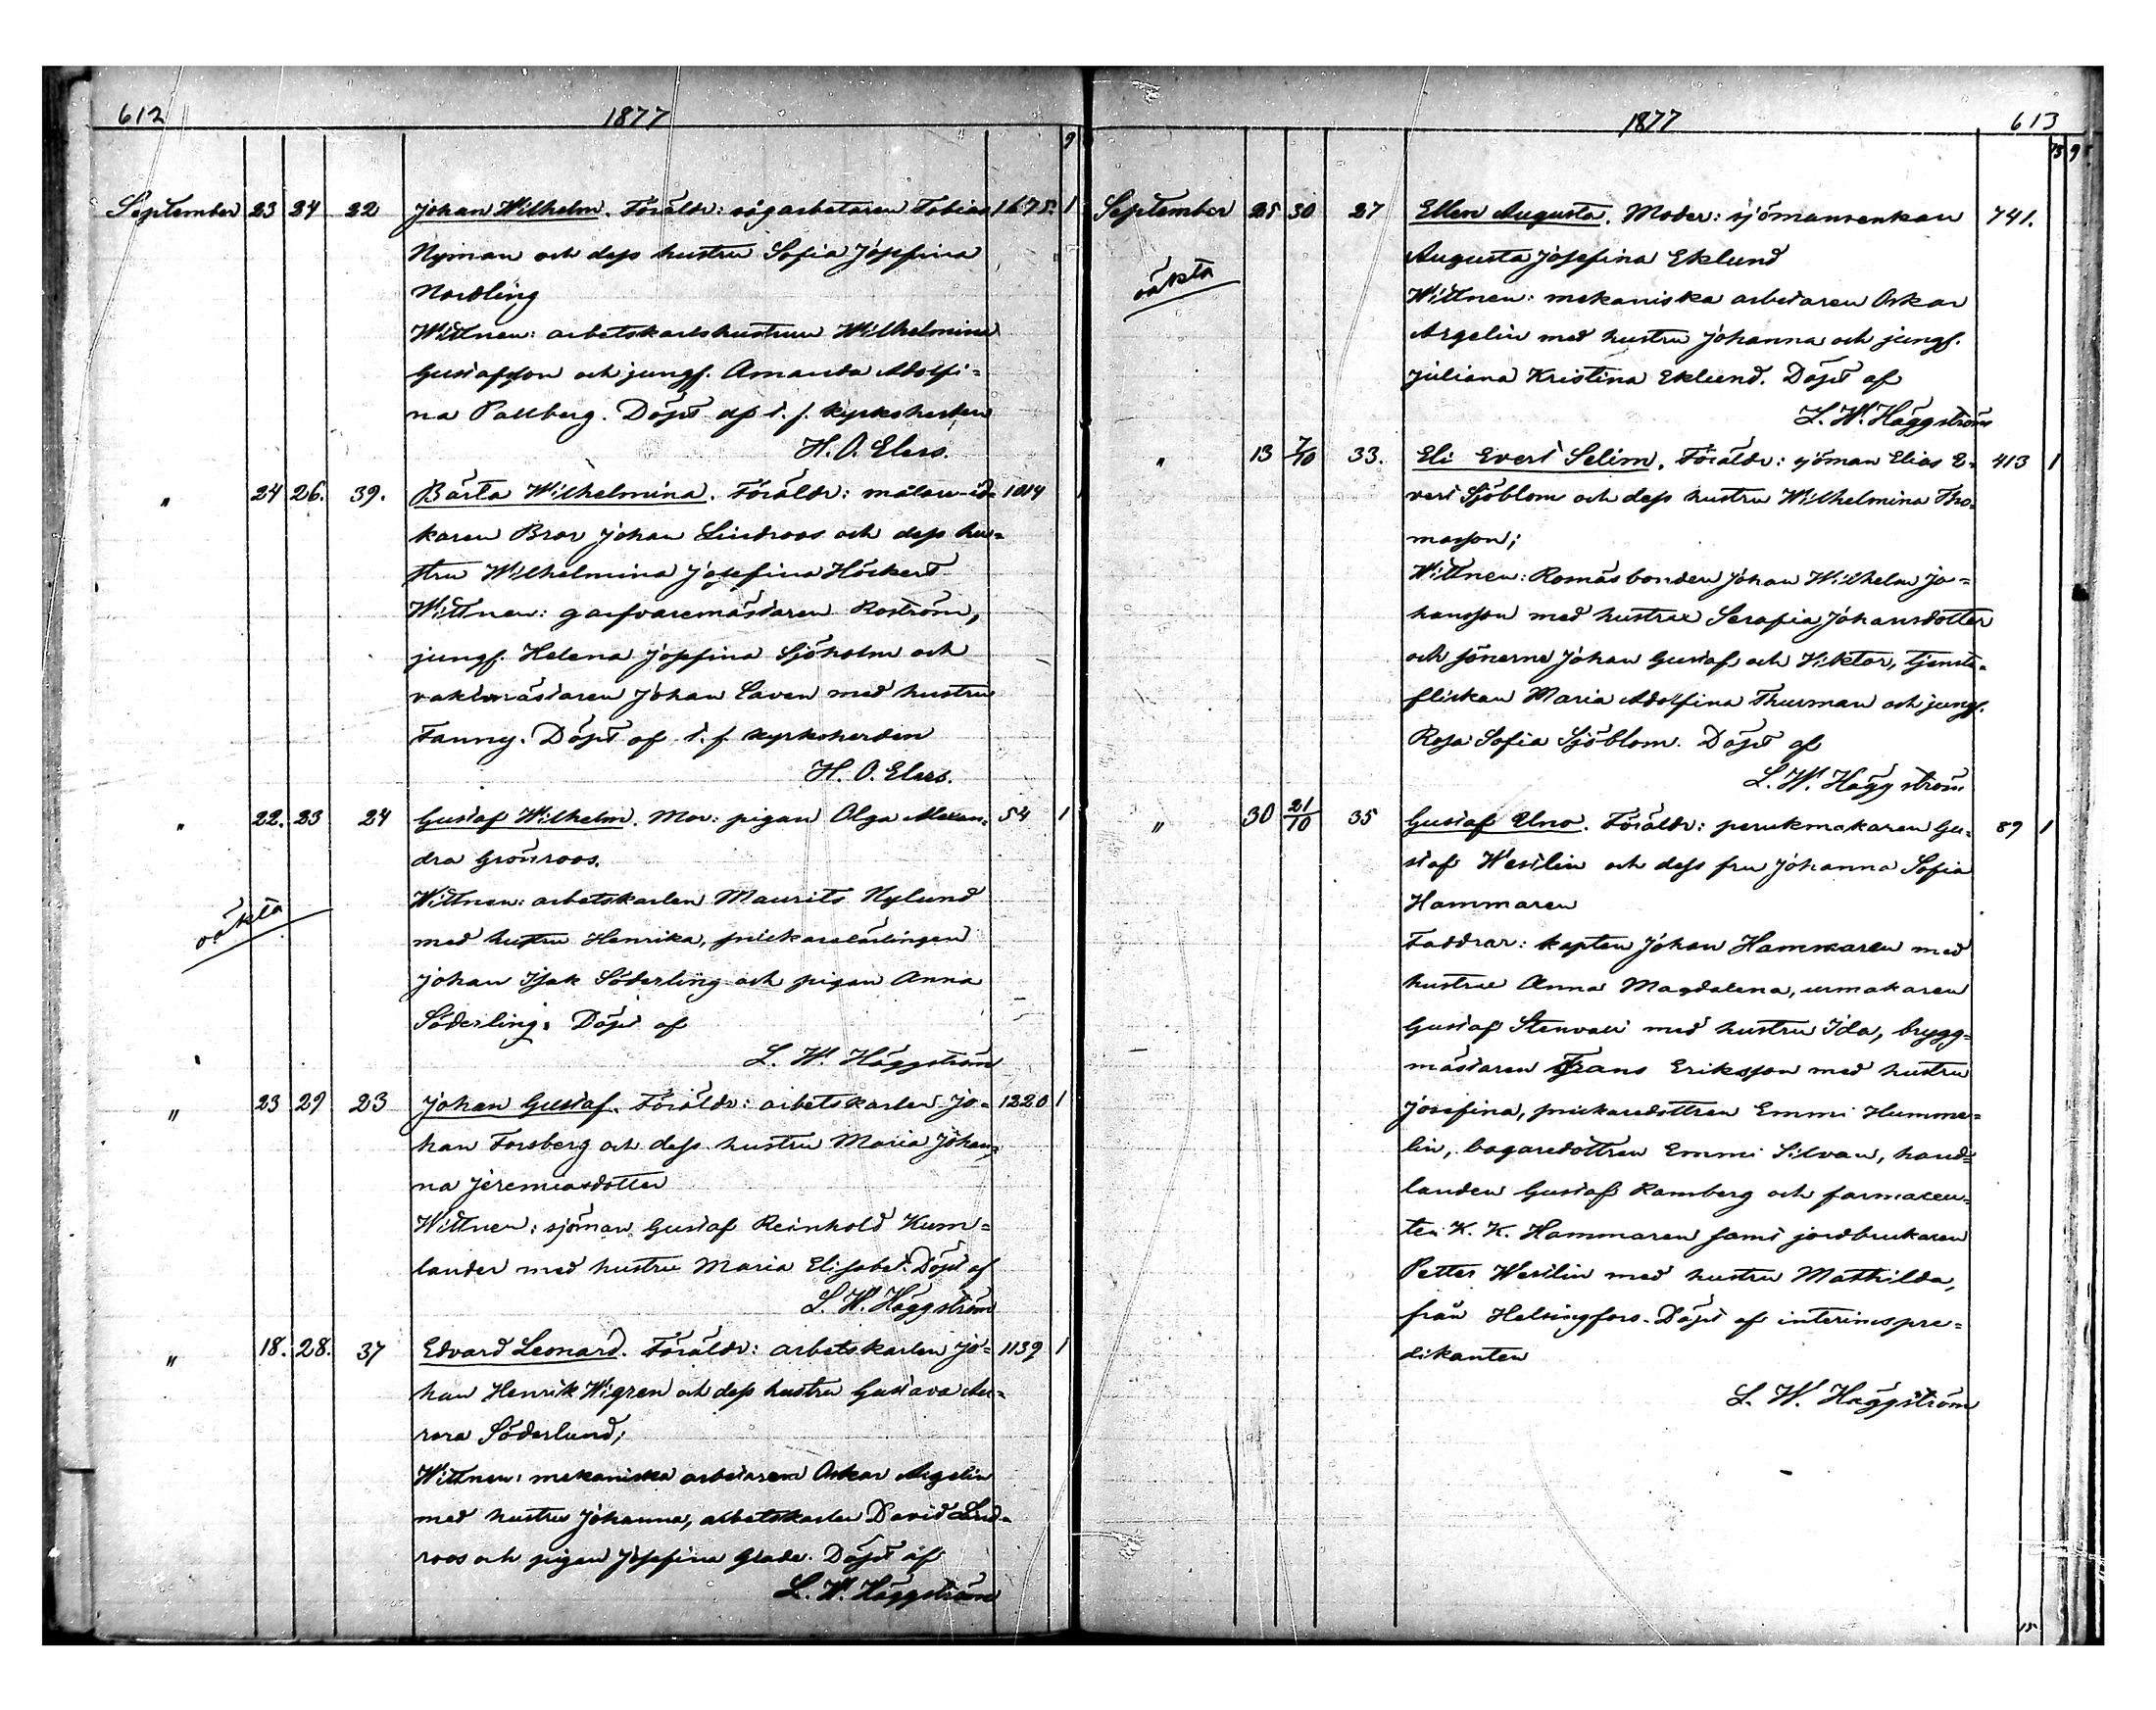 612 1877
9
September 23 24 22 Johan Wilhelm. Föräldr: sågarbetaren Tobias 1675. 1
Nyman och dess hustru Sofia Josefina
Nordling
Wittnen: arbetskarlshustrun Wilhelmina
Gustafsson och jungf. Amanda Adolfi=
na Pallberg. Döpt af t. f. kyrkoherden
H. O. Elers.
" 24 26. 39. Bärta Wilhelmina. Föräldr: målare-id= 1014 1
karen Bror Johan Lindroos och dess hu=
stru Wilhelmina Josefina Höckert
Wittnen: garfvaremästaren Roström,
jungf. Helena Josefina Sjöholm och
vaktmästaren Johan Laven med hustru
Fanny. Döpt af t. f. kyrkoherden
H. O. Elers.
" 22. 23 24 Gustaf Wilhelm. Mor: pigan Olga Alexan= 54 1
dra Grönroos.
oäkta
Wittnen: arbetskarlen Maurits Nylund
med hustru Henrika, snickarelärlingen
Johan Isak Söderling och pigan Anna
Söderling. Döpt af
L. W. Häggström
" 23 29 23 Johan Gustaf. Föräldr: arbetskarlen Jo= 1220 1
han Forsberg och dess hustru Maria Johan=
na Jeremiasdotter
Wittnen: sjöman Gustaf Reinhold Kum=
lander med hustru Maria Elisabet. Döpt af
L. W. Häggström
" 18. 28. 37 Edvard Leonard. Föräldr: arbetskarlen Jo= 1139 1
han Henrik Wigren och dess hustru Gustava Au=
rora Söderlund;
Wittnen: mekaniska arbetaren Oskar Argelin
med hustru Johanna, arbetskarlen David Lind=
roos och pigan Josefina Glade. Döpt af
L. W. Häggström
1877 613
September 25 30 27 Ellen Augusta. Moder: sjömansenkan 741.
Augusta Josefina Eklund
oäkta
Wittnen: mekaniska arbetaren Oskar
Argelin med hustru Johanna och jungf.
Juliana Kristina Eklund. Döpt af
L. W. Häggström
" 13 7/10 33. Eli Evert Selim. Föräldr: sjöman Elias E= 413 1
vert Sjöblom och dess hustru Wilhelmina Tho=
masson;
Wittnen: Romäsbonden Johan Wilhelm Jo=
hansson med hustru Serafia Johansdotter
och sönerna Johan Gustaf och Viktor, tjenste=
flickan Maria Adolfina Thurman och jungf.
Rosa Sofia Sjöblom. Döpt af
L. W. Häggström
" 30 21/10 35 Gustaf Uno. Föräldr: perukmakaren Gu= 89 1
staf Westlin och dess fru Johanna Sofia
Hammaren
Faddrar: kapten Johan Hammaren med
hustru Anna Magdalena, urmakaren
Gustaf Stenvall med hustru Ida, brygg=
mästaren Frans Eriksson med hustru
Josefina, snickaredottren Emmi Humme=
lin, bagaredottren Emmi Silvan, hand=
landen Gustaf Ramberg och farmaceu=
ten K. K. Hammaren samt jordbrukaren
Petter Westlin med hustru Mathilda,
från Helsingfors. Döpt af interimspre=
dikanten
L. W. Häggström
15